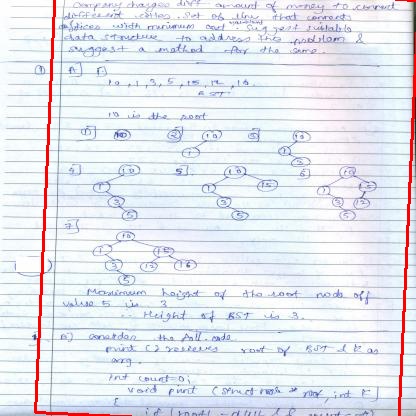 company charges diff amount of money to connect
different cities. Set of line that connects
offices with minimum cost. Suggest suitable
data structure to address this problem &
suggest a method for the same.
A]
10, 1, 3, 5, 15, 12, 16.
BST
10 is the root
1] 10 2] 10 1 3] 10 1
4] 10 1 3 5 5] 10 1 15 3 5 6] 10 1 15 3 12 5
7] 10 1 15 3 12 16 5
Maximum height of the root node off
value 5 is 3
∴ Height of BST is 3.
B) consider the foll. code
print () receives root of BST & k as
arg.
int count=0;
void print (struct node * root, int k
{
if (root! = NULL &&